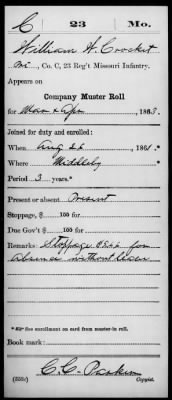 C 23 Mo.
William H. Crocket
Co. C, 23 Reg't Missouri Infantry.
Appears on
Company Muster Roll
for Mar & Apr, 1863.
Joined for duty and enrolled:
When Aug 22, 1861.*
Where
Period 3 years.*
Present or absent Present
Stoppage, $ 100 for
Due Gov't $ 100 for
Remarks: Stoppage for
absence without leave
* See enrollment on card from muster-in roll.
Book mark:
C.C.
(358c) Copyist.